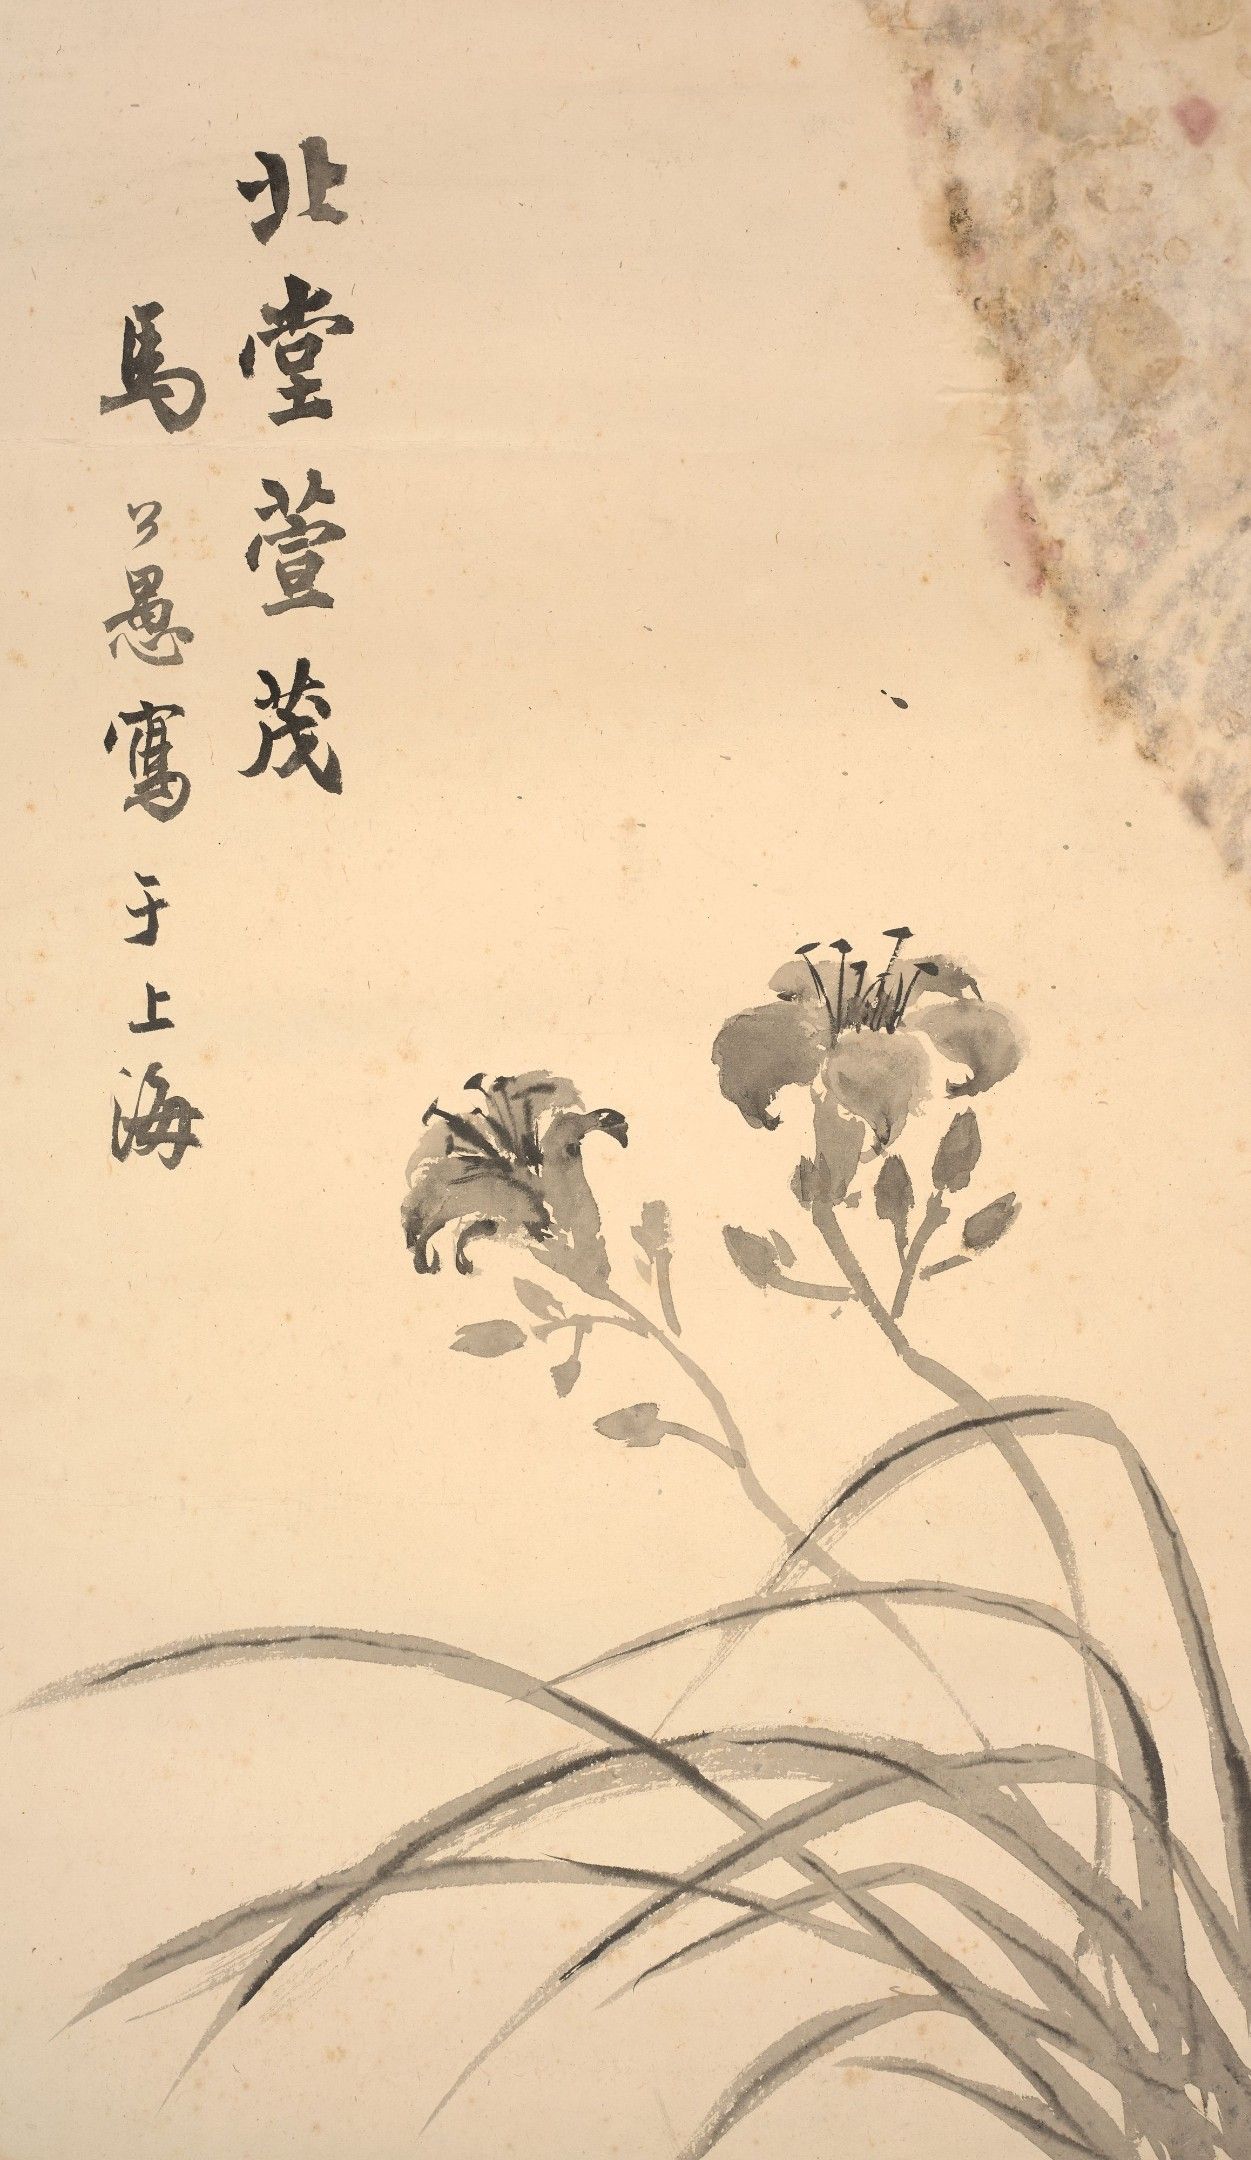 北堂萱茂
馬公愚寫于上海